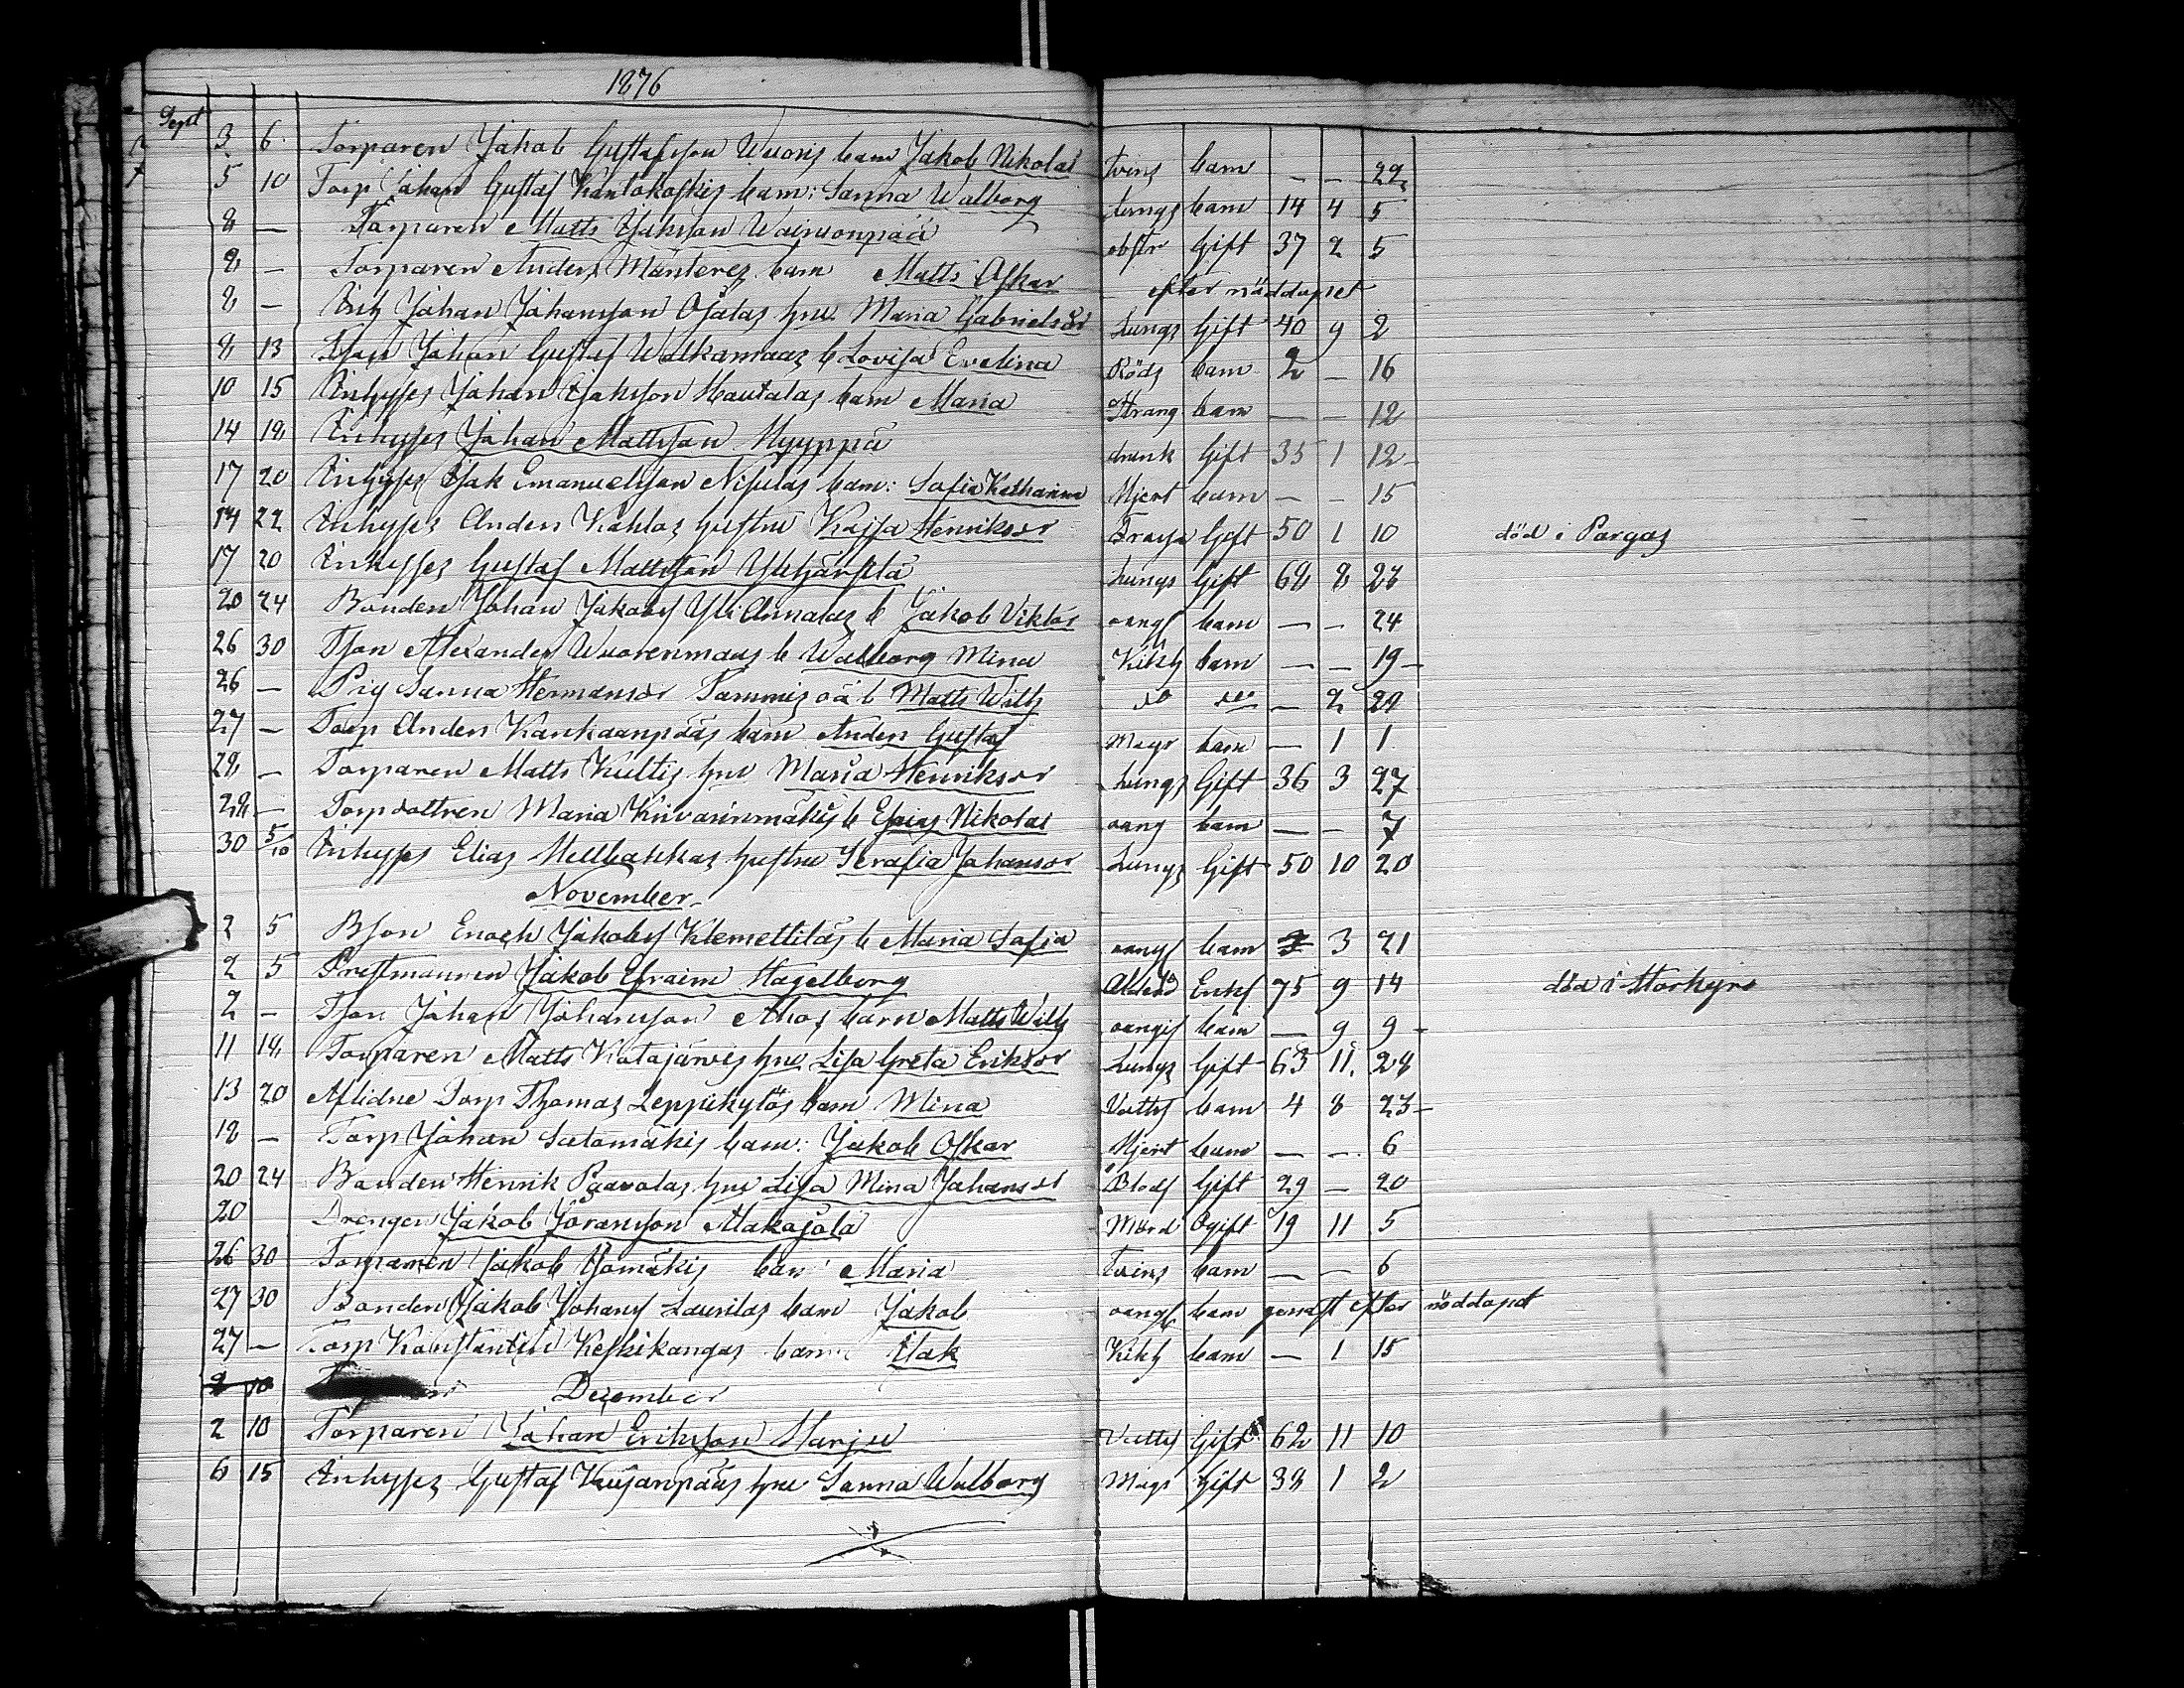 1876
Sept
3 6 Torparen Jakob Gustafsson Wuoris barn Jakob Nikolai tvins barn — — 22
5 10 Torp Johan Gustaf Kantokoskis barn: Sanna Walborg lungs barn 14 4 5
8 — Torparen Matts Isaksson Wainionpää obstr Gift 37 2 5
8 — Torparen Anders Mänteres barn Matts Oskar efter nöddopet
8 — Inh Johan Johansson Ojalas hru Maria Gabrielsdr Lungs Gift 40 9 2
8 13 Tson Johan Gustaf Walkamaas b Lovisa Evelina Röds barn 2 — 16
10 15 Inhyses Johan Isaksson Hautalas barn Maria Strang barn — — 12
14 18 Inhyses Johan Mattsson Hyyppä drunk Gift 35 1 12
17 20 Inhyses Isak Emanuelsson Nisulas barn: Sofia Katharina Hjert barn — — 15
14 22 Inhyses Anders Kahlas hustru Kajsa Henriksdr Gift 50 1 10 död i Pargas
17 20 Inhyses Gustaf Mattsson Lungs Gift 68 8 28
20 24 Bonden Johan Jakobs Yli Annalas b Jakob Viktor oangf barn — — 24
26 30 Tson Alexander Wuorenmaas b Walborg Mina Kikh barn — — 19
26 — Pig Sanna Hermansdr Tammis oä b Matts Wilh do do — 2 29
27 — Torp Anders Kankaanpääs barn Anders Gustaf Magr barn — 1 1
28 — Torparen Matts Kultis hru Maria Henriksdr Lungs Gift 36 3 27
28 — Torpdottren Maria Kiivarinmäkis b Esaias Nikolai oang barn — — 7
30 5/10 Inhyses Elias hustru Serafia Johansdr Lungs Gift 50 10 20
November
2 5 Bson Enoch Jakobs Klemettiläs b Maria Sofia oangf barn 3 21
2 5 Prestmannen Jakob Efraim Hagelberg Ålderd Enkl 75 9 14 död i Storkyro
2 — Tson Johan Johansson Ahos barn Matts Wilh oangif barn — 9 9
11 18 Torparen Matts Katajärvis hru Lisa Greta Eriksdr Lungs Gift 63 11 28
13 20 Aflidne Torp Thomas Leppikytös barn Mina Vatts barn 4 8 23
18 — Torp Johan Satamäkis barn: Jakob Oskar Hjert barn — — 6
20 24 Bonden Henrik Paavolas hru Lisa Mina Johansdr Blods Gift 29 — 20
20 Drengen Jakob Göransson Alakojola Mörd Ogift 19 11 5
26 30 Torparen Jakob Isomäkis barn Maria tvins barn — — 6
27 30 Bonden Jakob Johans Laurilas barn Jakob oangf barn genast efter nöddopet
27 — Torp Konstantin Keskikangas barn Isak Kikh barn — 1 15
2 10 December
2 10 Torparen Johan Eriksson Harju Vatts Gift 62 11 10
6 15 Inhyses Gustaf Kujanpääs hru Sanna Walborg Mags Gift 38 1 2